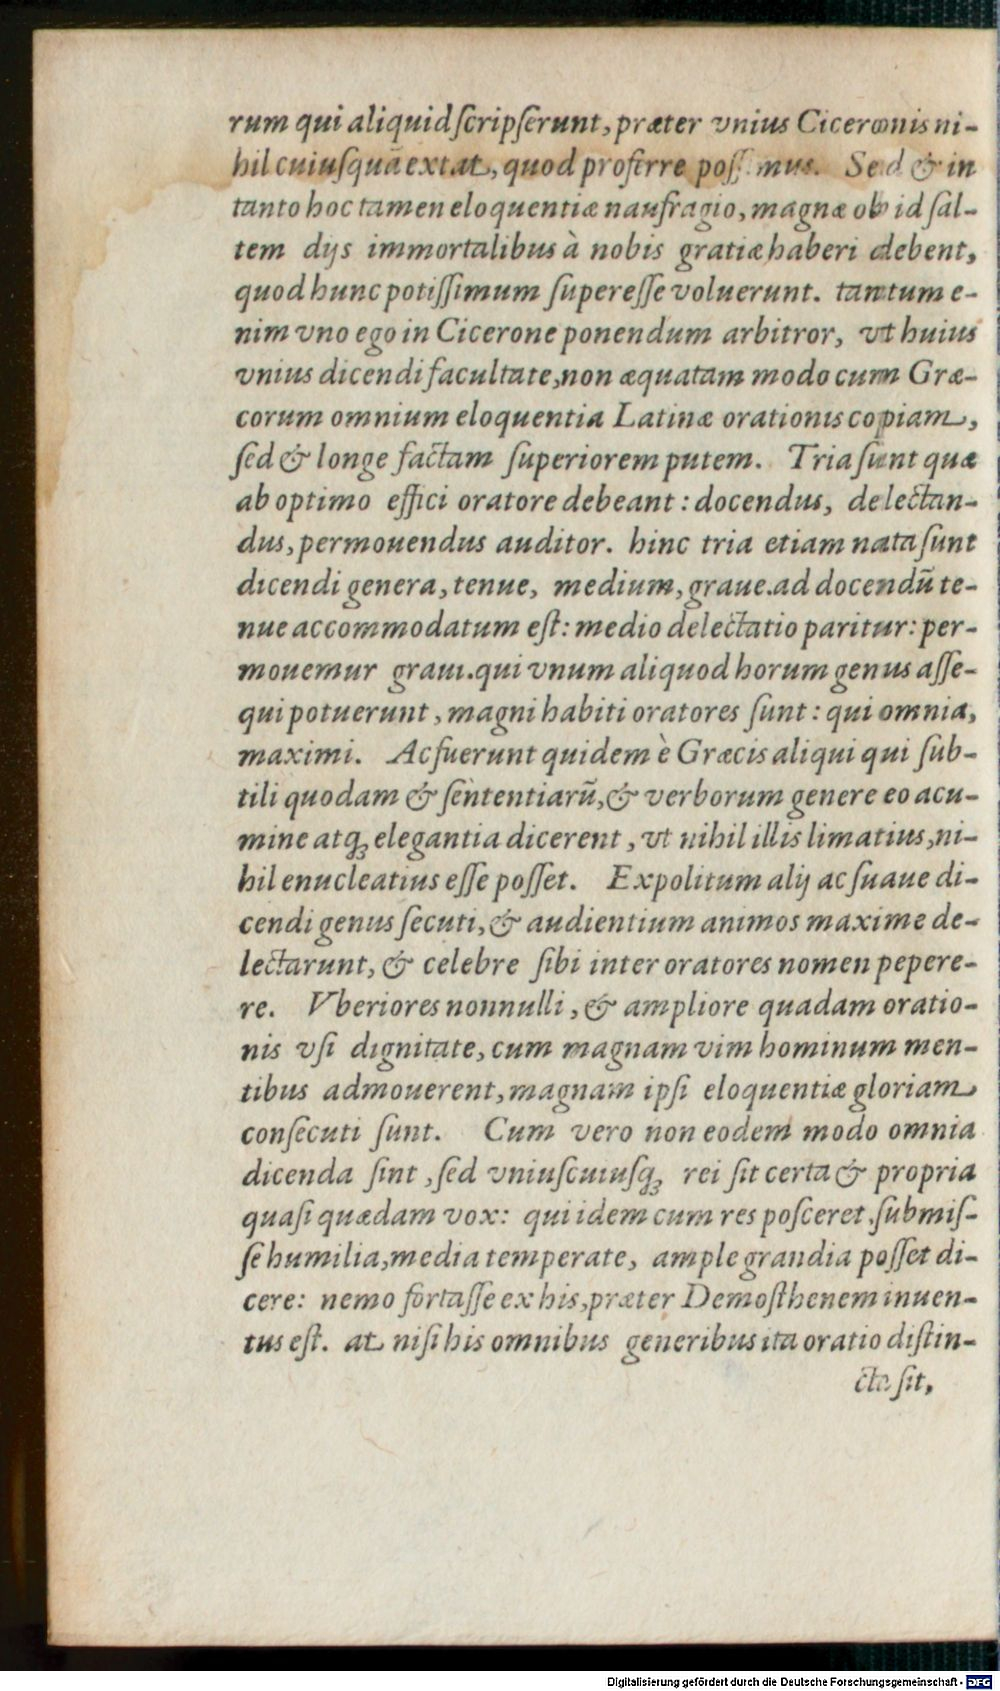 rum qui aliquid ſcripſerunt, præter vnius Ciceronis ni-
hil cuiuſquā extat, quod proferre poſſimus. Sed & in
tanto hoc tamen eloquentiæ naufragio, magnæ ob id ſal-
tem dijs immortalibus à nobis gratiæ haberi debent,
quod hunc potiſſimum ſupereſſe voluerunt. tantum e-
nim vno ego in Cicerone ponendum arbitror, vt huius
vnius dicendi facultate, non æquatam modo cum Græ-
corum omnium eloquentia Latinæ orationis copiam,
ſed & longe factam ſuperiorem putem. Tria ſunt quæ
ab optimo effici oratore debeant: docendus, delectan-
dus, permouendus auditor. hinc tria etiam nata ſunt
dicendi genera, tenue, medium, graue. ad docendū te-
nue accommodatum eſt: medio delectatio paritur: per-
mouemur graui. qui vnum aliquod horum genus aſſe-
qui potuerunt, magni habiti oratores ſunt: qui omnia,
maximi. Ac fuerunt quidem è Græcis aliqui qui ſub-
tili quodam & ſententiarū, & verborum genere eo acu-
mine atq; elegantia dicerent, vt nihil illis limatius, ni-
hil enucleatius eſſe poſſet. Expolitum alij ac ſuaue di-
cendi genus ſecuti, & audientium animos maxime de-
lectarunt, & celebre ſibi inter oratores nomen pepere-
re. Vberiores nonnulli, & ampliore quadam oratio-
nis vſi dignitate, cum magnam vim hominum men-
tibus admouerent, magnam ipſi eloquentiæ gloriam
conſecuti ſunt. Cum vero non eodem modo omnia
dicenda ſint, ſed vniuſcuiuſq; rei ſit certa & propria
quaſi quædam vox: qui idem cum res poſceret, ſubmiſ-
ſe humilia, media temperate, ample grandia poſſet di-
cere: nemo fortaſſe ex his, præter Demoſthenem inuen-
tus eſt. at niſi his omnibus generibus ita oratio diſtin-
cta ſit,
Digitalisierung gefördert durch die Deutsche Forschungsgemeinschaft - DFG